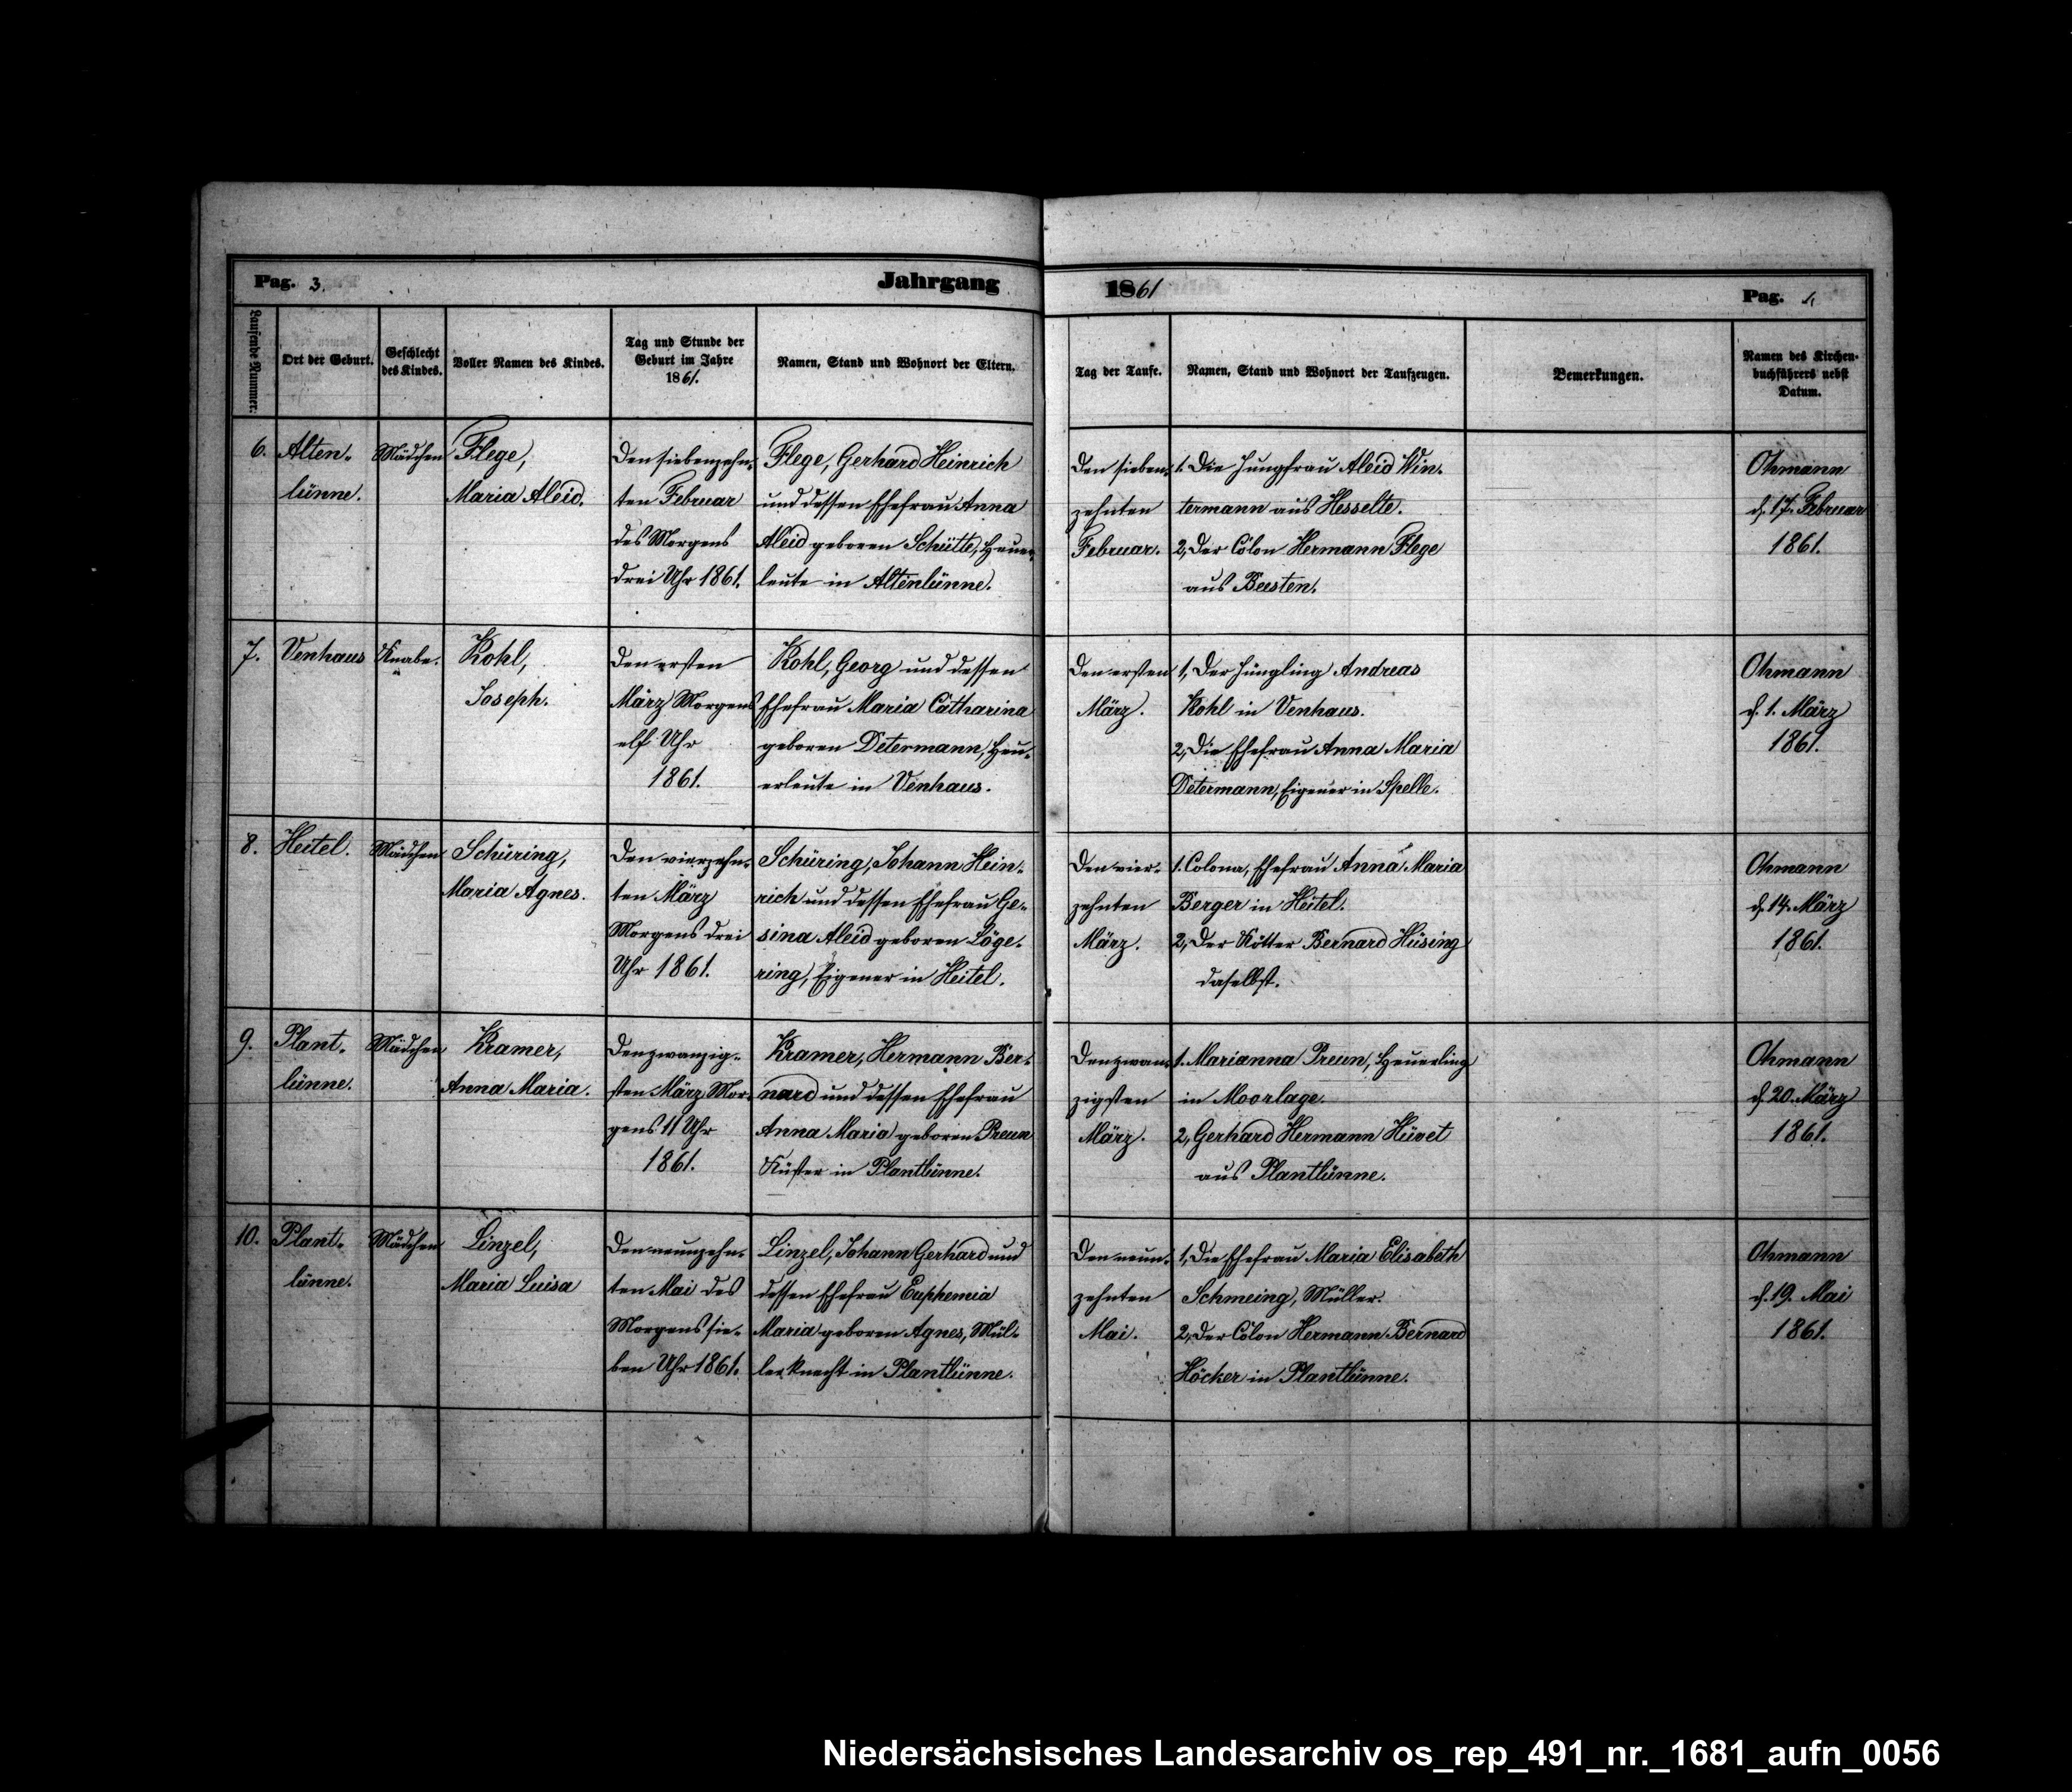 Pag. 3. Jahrgang 1861 Pag.
Laufende Nummer.
Ort der Geburt.
Geschlecht
des Kindes.
Voller Namen des Kindes.
Tag und Stunde der
Geburt im Jahre
1861.
Namen, Stand und Wohnort der Eltern.
Tag der Taufe.
Namen, Stand und Wohnort der Taufzeugen.
Bemerkungen.
Namen des Kirchen-
buchführers nebst
Datum.
6.
Alten-
lünne.
Mädchen
Flege,
Maria Aleid.
Den siebenzehn-
ten Februar
des Morgens
drei Uhr 1861.
Flege, Gerhard Heinrich
und dessen Ehefrau Anna
Aleid geboren Schütte, Heuer-
leute in Altenlünne.
Den sieben-
zehnten
Februar.
1. Die Jungfrau Aleid Win-
termann aus Hesselte.
2, Der Colon Hermann Flege
aus Beesten.
Ohmann
d. 17. Februar
1861.
7.
Venhaus
Knabe.
Kohl,
Joseph.
Den ersten
März Morgens
elf Uhr
1861.
Kohl, Georg und dessen
Ehefrau Maria Catharina
geboren Determann, Heu-
erleute in Venhaus.
Den ersten
März.
1, Der Jüngling Andreas
Kohl in Venhaus.
2, Die Ehefrau Anna Maria
Determann, Eigener in Spelle.
Ohmann
d. 1. März
1861.
8.
Heitel.
Mädchen
Schüring,
Maria Agnes.
Den vierzehn-
ten März
Morgens drei
Uhr 1861.
Schüring, Johann Hein-
rich und dessen Ehefrau Ge-
sina Aleid geboren Löge-
ring, Eigener in Heitel.
Den vier-
zehnten
März.
1. Colona, Ehefrau Anna Maria
Berger in Heitel.
2, Der Kötter Bernard Hüsing
daselbst.
Ohmann
d. 14. März
1861.
9.
Plant-
lünne.
Mädchen
Kramer,
Anna Maria.
Den zwanzig-
sten März Mor-
gens 11 Uhr
1861.
Kramer, Hermann Ber-
nard und dessen Ehefrau
Anna Maria geboren Preun
Küster in Plantlünne.
Den zwan-
zigsten
März.
1. Marianna Preun, Heuerling
in Moorlage.
2, Gerhard Hermann Hüvet
aus Plantlünne.
Ohmann
d. 20. März
1861.
10.
Plant-
lünne.
Mädchen
Linzel,
Maria Luisa
Den neunzehn-
ten Mai des
Morgens sie-
ben Uhr 1861.
Linzel, Johann Gerhard und
dessen Ehefrau Euphemia
Maria geboren Agnes, Mül-
lerknecht in Plantlünne.
Den neun-
zehnten
Mai.
1, Die Ehefrau Maria Elisabeth
Schmeing, Müller.
2, Der Colon Hermann Bernard
Höcker in Plantlünne.
Ohmann
d. 19. Mai
1861.
Niedersächsisches Landesarchiv os_rep_491_nr._1681_aufn_0056